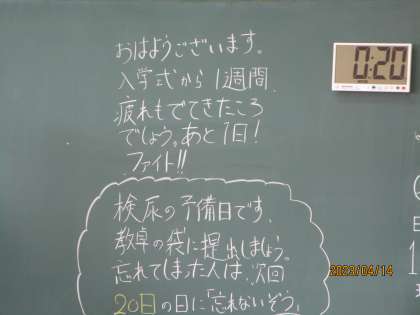 おはようございます。
入学式から1週間、
疲れもでてきたころ
でしょう。あと1日!
ファイト!!
検尿の予備日です、
教卓の袋に提出しましょう。
忘れてしまった人は、次回
20日の日に「忘れないぞう」
0:20
2023/04/14